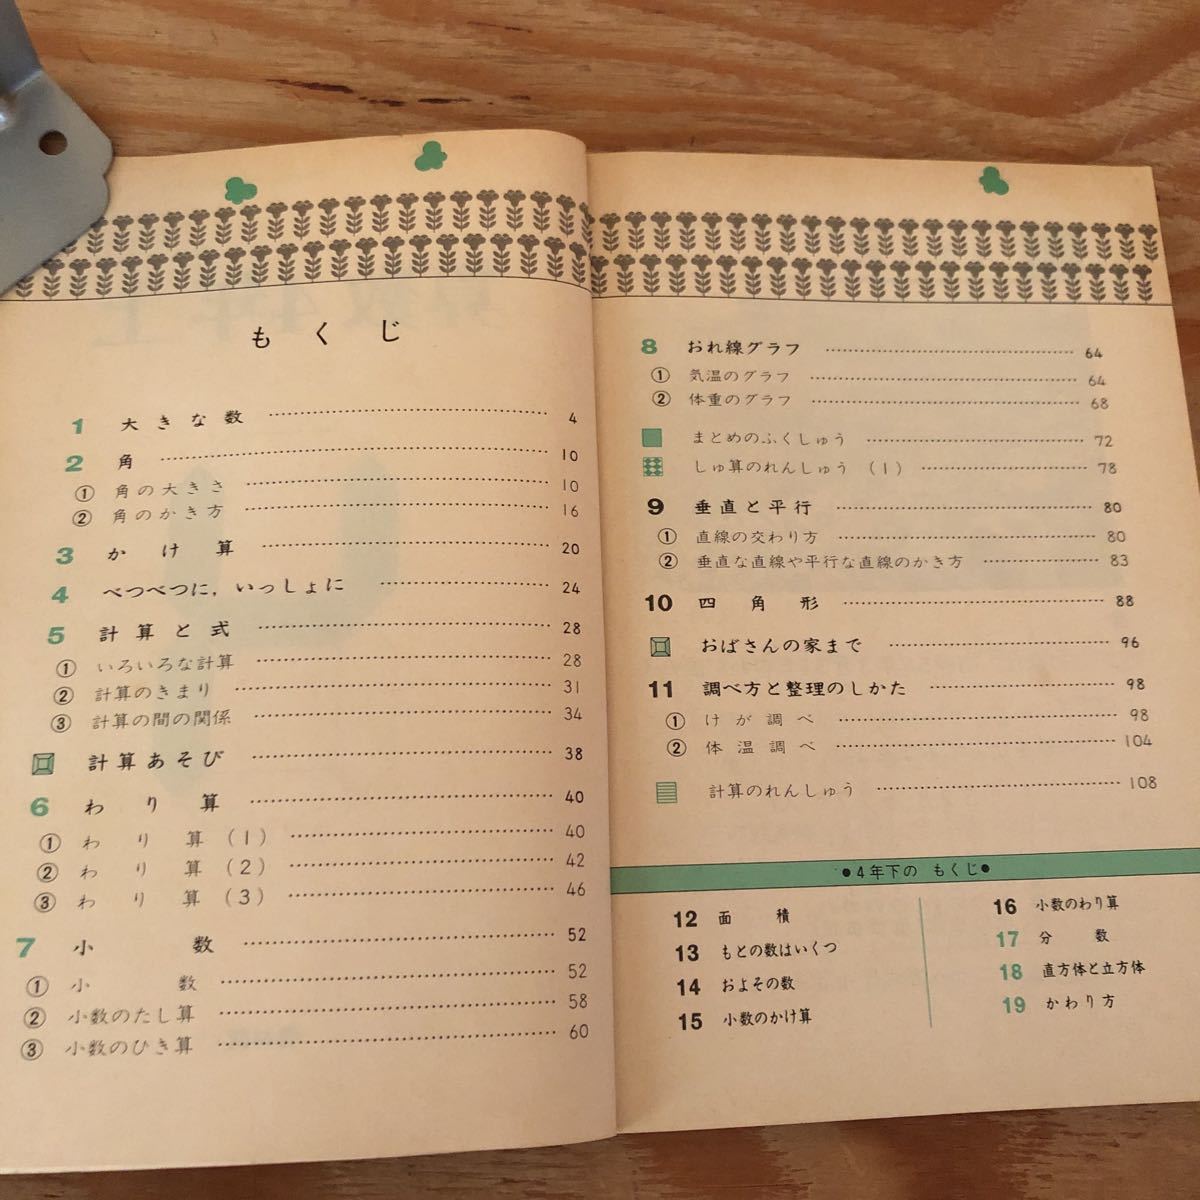 もくじ
1 大きな数 4
2 角 10
① 角の大きさ 10
② 角のかき方 16
3 かけ算 20
4 べつべつに，いっしょに 24
5 計算と式 28
① いろいろな計算 28
② 計算のきまり 31
③ 計算の間の関係 34
計算あそび 38
6 わり算 40
① わり算（1） 40
② わり算（2） 42
③ わり算（3） 46
7 小数 52
① 小数 52
② 小数のたし算 58
③ 小数のひき算 60
8 おれ線グラフ 64
① 気温のグラフ 64
② 体重のグラフ 68
まとめのふくしゅう 72
しゅ算のれんしゅう（1） 78
9 垂直と平行 80
① 直線の交わり方 80
② 垂直な直線や平行な直線のかき方 83
10 四角形 88
おばさんの家まで 96
11 調べ方と整理のしかた 98
① けが調べ 98
② 体温調べ 104
計算のれんしゅう 108
●4年下の もくじ●
12 面積
13 もとの数はいくつ
14 およその数
15 小数のかけ算
16 小数のわり算
17 分数
18 直方体と立方体
19 かわり方